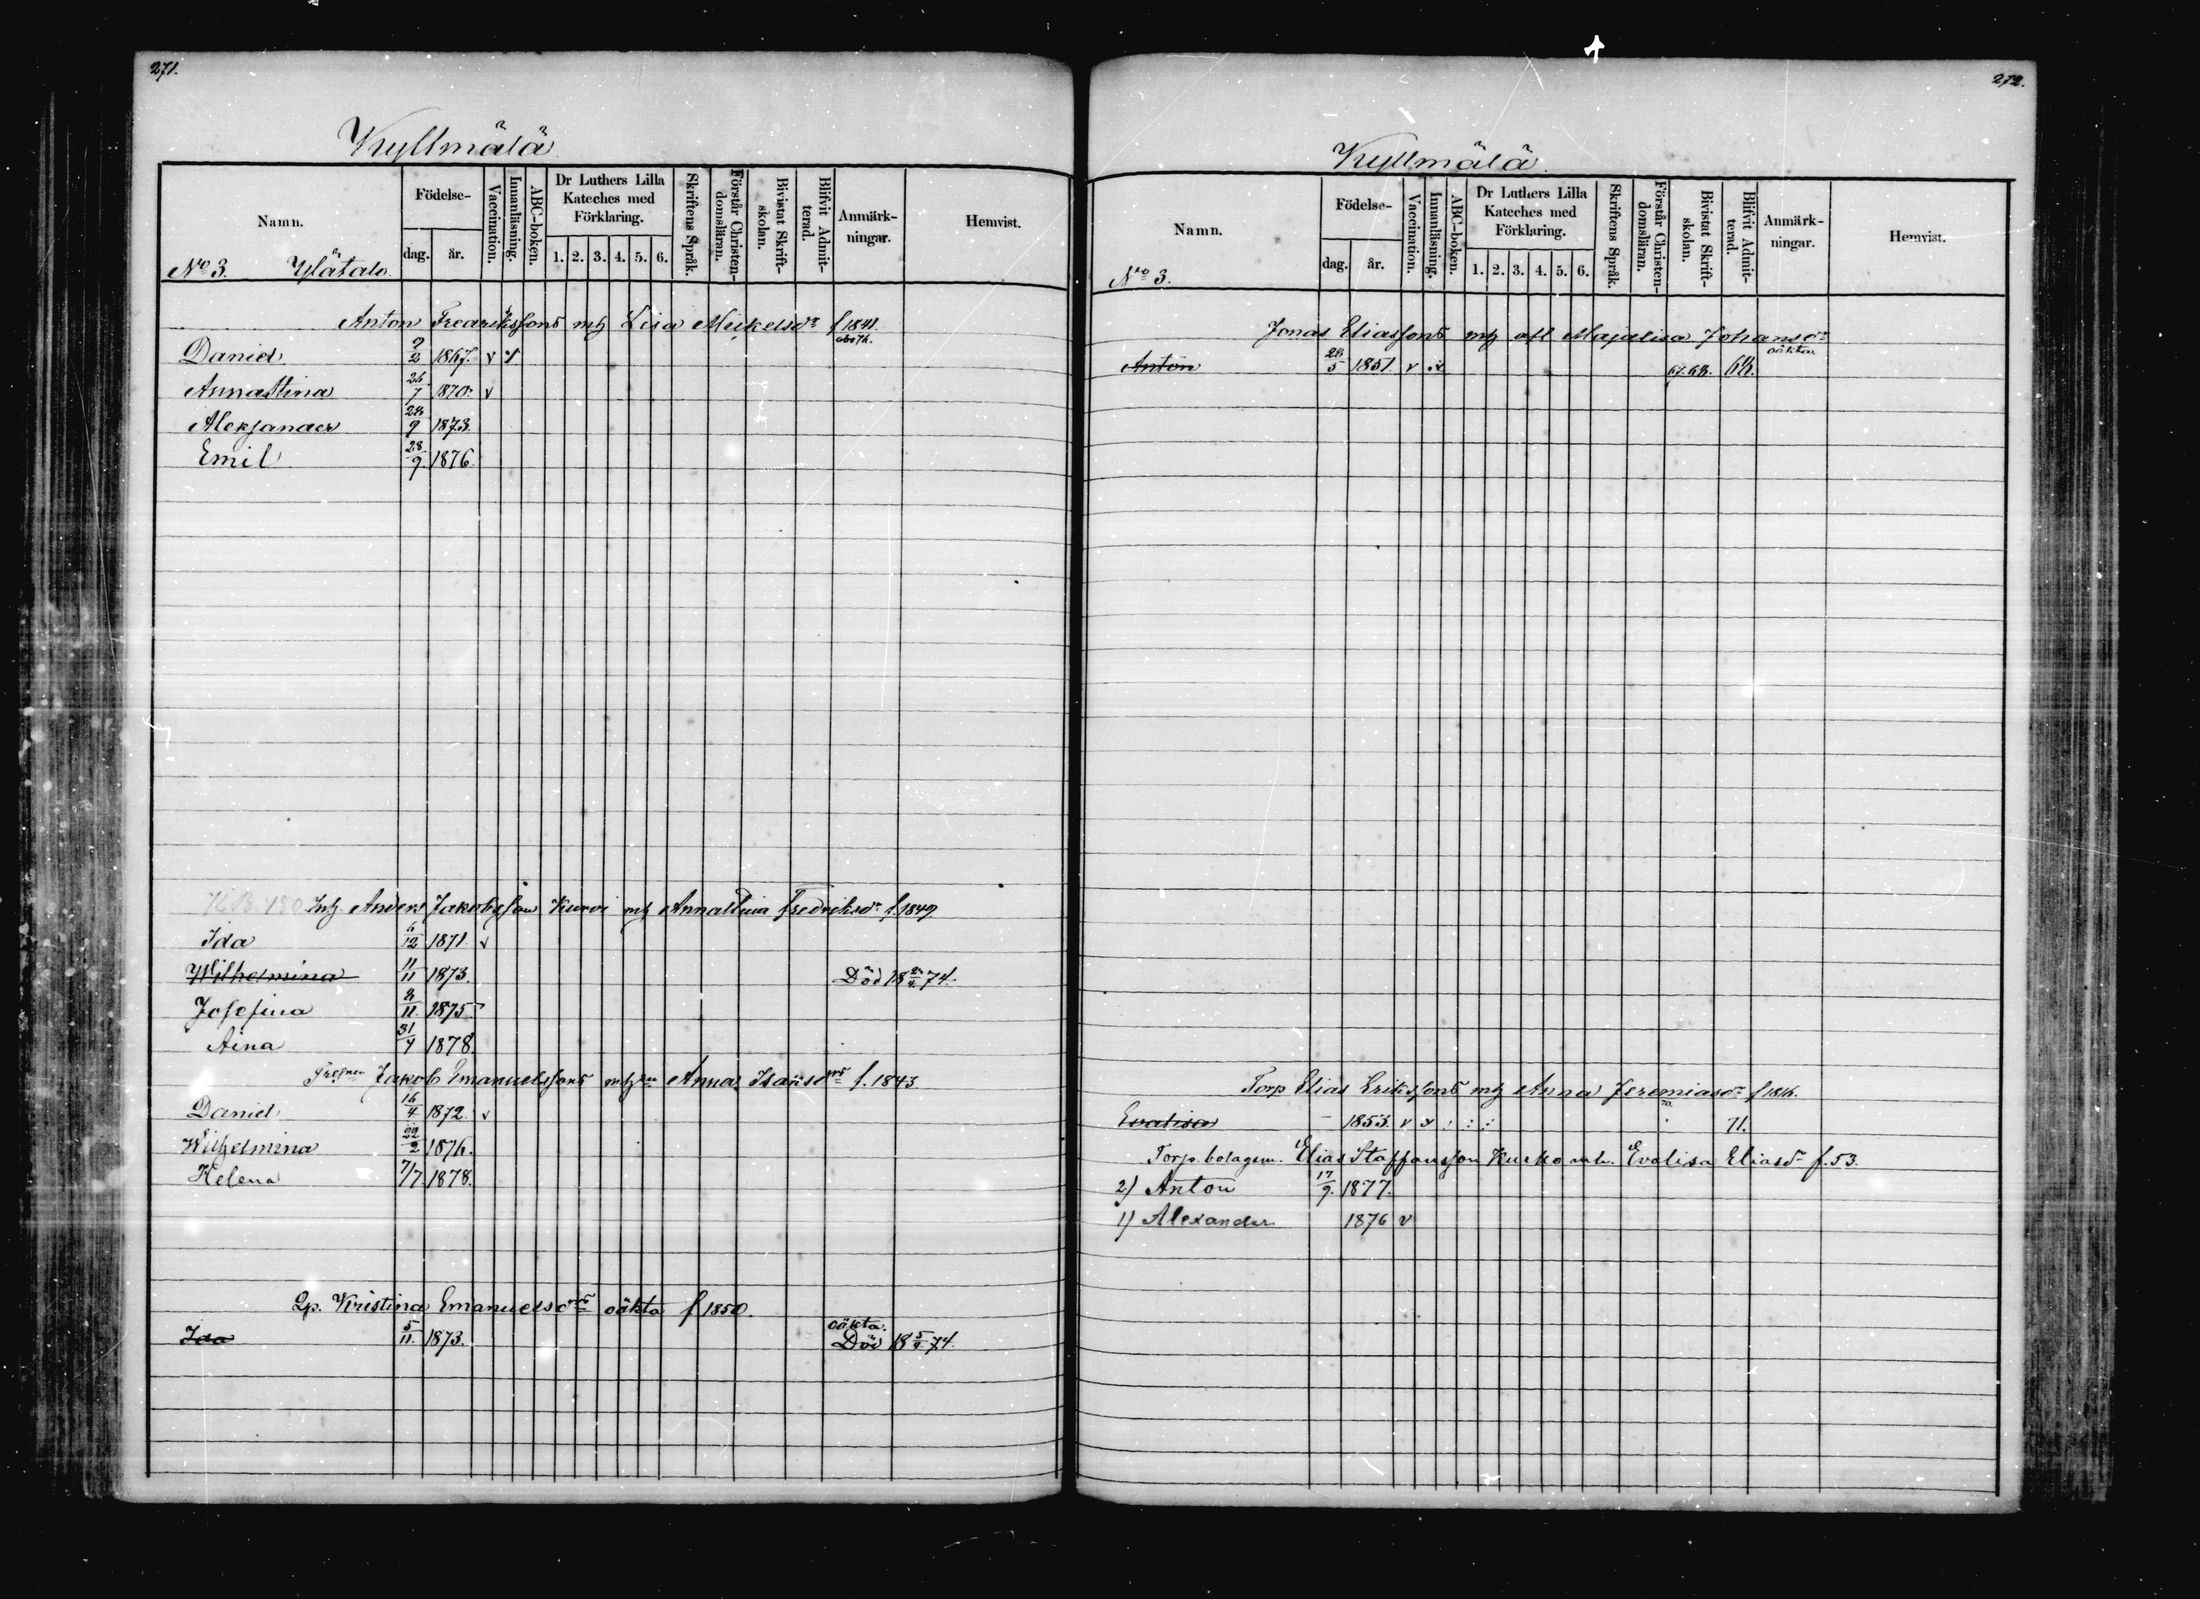 271.
Kyllmälä
Namn. Födelse- dag. år. Vaccination. Innanläsning. ABC-boken. Dr Luthers Lilla Kateches med Förklaring. 1. 2. 3. 4. 5. 6. Skriftens Språk. Förstår Christendomsläran. Bivistat Skriftskolan. Blifvit Admitterad. Anmärkningar. Hemvist.
No 3. Ylätalo
Anton Fredrikssons mh Lisa Mickelsdr f 1841.
Daniel 2 1867. v v
Annastina 26/7 1870. v
Alexander 28/9 1873.
Emil 28/9. 1876.
Inh. Anders Jakobsson Kurvi mh Annastina Fredriksdr f. 1849
Ida 6/12 1871. v
Wilhelmina 11/11 1873. Död 18 74.
Josefina 8/11. 1875
Aina 31/7 1878.
Jakob Emanuelssons Anna f. 1843.
Daniel 16/4 1872. v
Wilhelmina 29/2 1876.
Helena 7/7. 1878.
Qp. Kristina Emanuelsd oäkta f 1850.
oäkta.
Ida 5/11. 1873. Död 18 5/4 74.
272.
Kyllmälä.
Namn. Födelse- dag. år. Vaccination. Innanläsning. ABC-boken. Dr Luthers Lilla Kateches med Förklaring. 1. 2. 3. 4. 5. 6. Skriftens Språk. Förstår Christendomsläran. Bivistat Skriftskolan. Blifvit Admitterad. Anmärkningar. Hemvist.
No 3.
Jonas Eliassons mh afl Majalisa Johansdr
oäkta
Anton 28/5 1851. v 67. 68. 68.
Torp Elias Erikssons mh Anna Jeremiasdr f 1816.
Evalisa – 1853. v 71.
Torp. bolagsm. Elias Staffansson Kurko mh. Evalisa Eliasdr f. 53.
2) Anton 17/9. 1877.
1) Alexander 1876 v